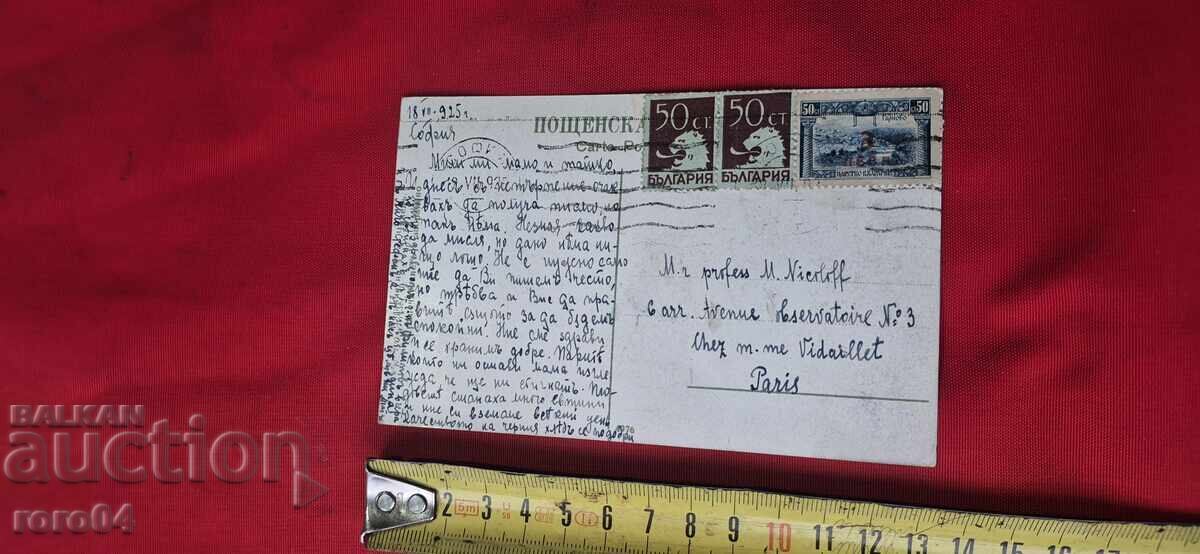 18 VII 925 г.
София
ПОЩЕНСКА
Carte Po
50 СТ.
БЪЛГАРИЯ
50 СТ.
БЪЛГАРИЯ
50 50
ТЪРНОВО
ЦАРСТВО БЪЛГАРИЯ
Мили ми мамо и татко,
днесъ въ нетърпение очак-
вахъ да получа писмо, но
пакъ нѣма. Незная какво
да мисля, но дано нѣма ни-
що лошо. Не е нужно само
ние да Ви пишемъ често,
но трѣбва и Вие да пра-
вите същото за да бѫдемъ
спокойни. Ние сме здрави
и се хранимъ добре. Паритѣ
които ни остави мама изгле-
жда че ще ни стигнатъ. Пло-
доветѣ станаха много евтини
и ние си вземаме всѣки день
Качеството на черния хлѣбъ се подобри
M-r profess M. Nicoloff
6 arr. Avenue Observatoire No 3
Chez m. me Vidaillet
Paris
BALKAN
auction
roro04
1 2 3 4 5 6 7 8 9 10 11 12 13 14 15 16